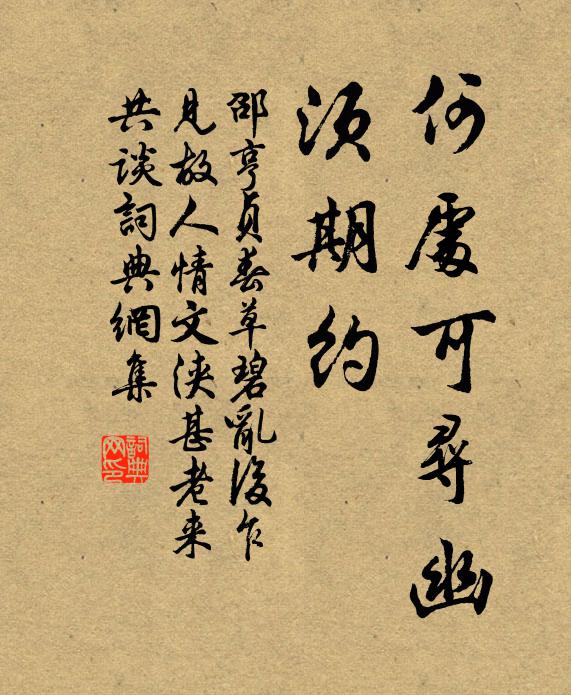 何處可尋幽
須期約
邵亨貞春草碧亂後乍
見故人情文浹甚老来
共談詞典網集
詞典
网印